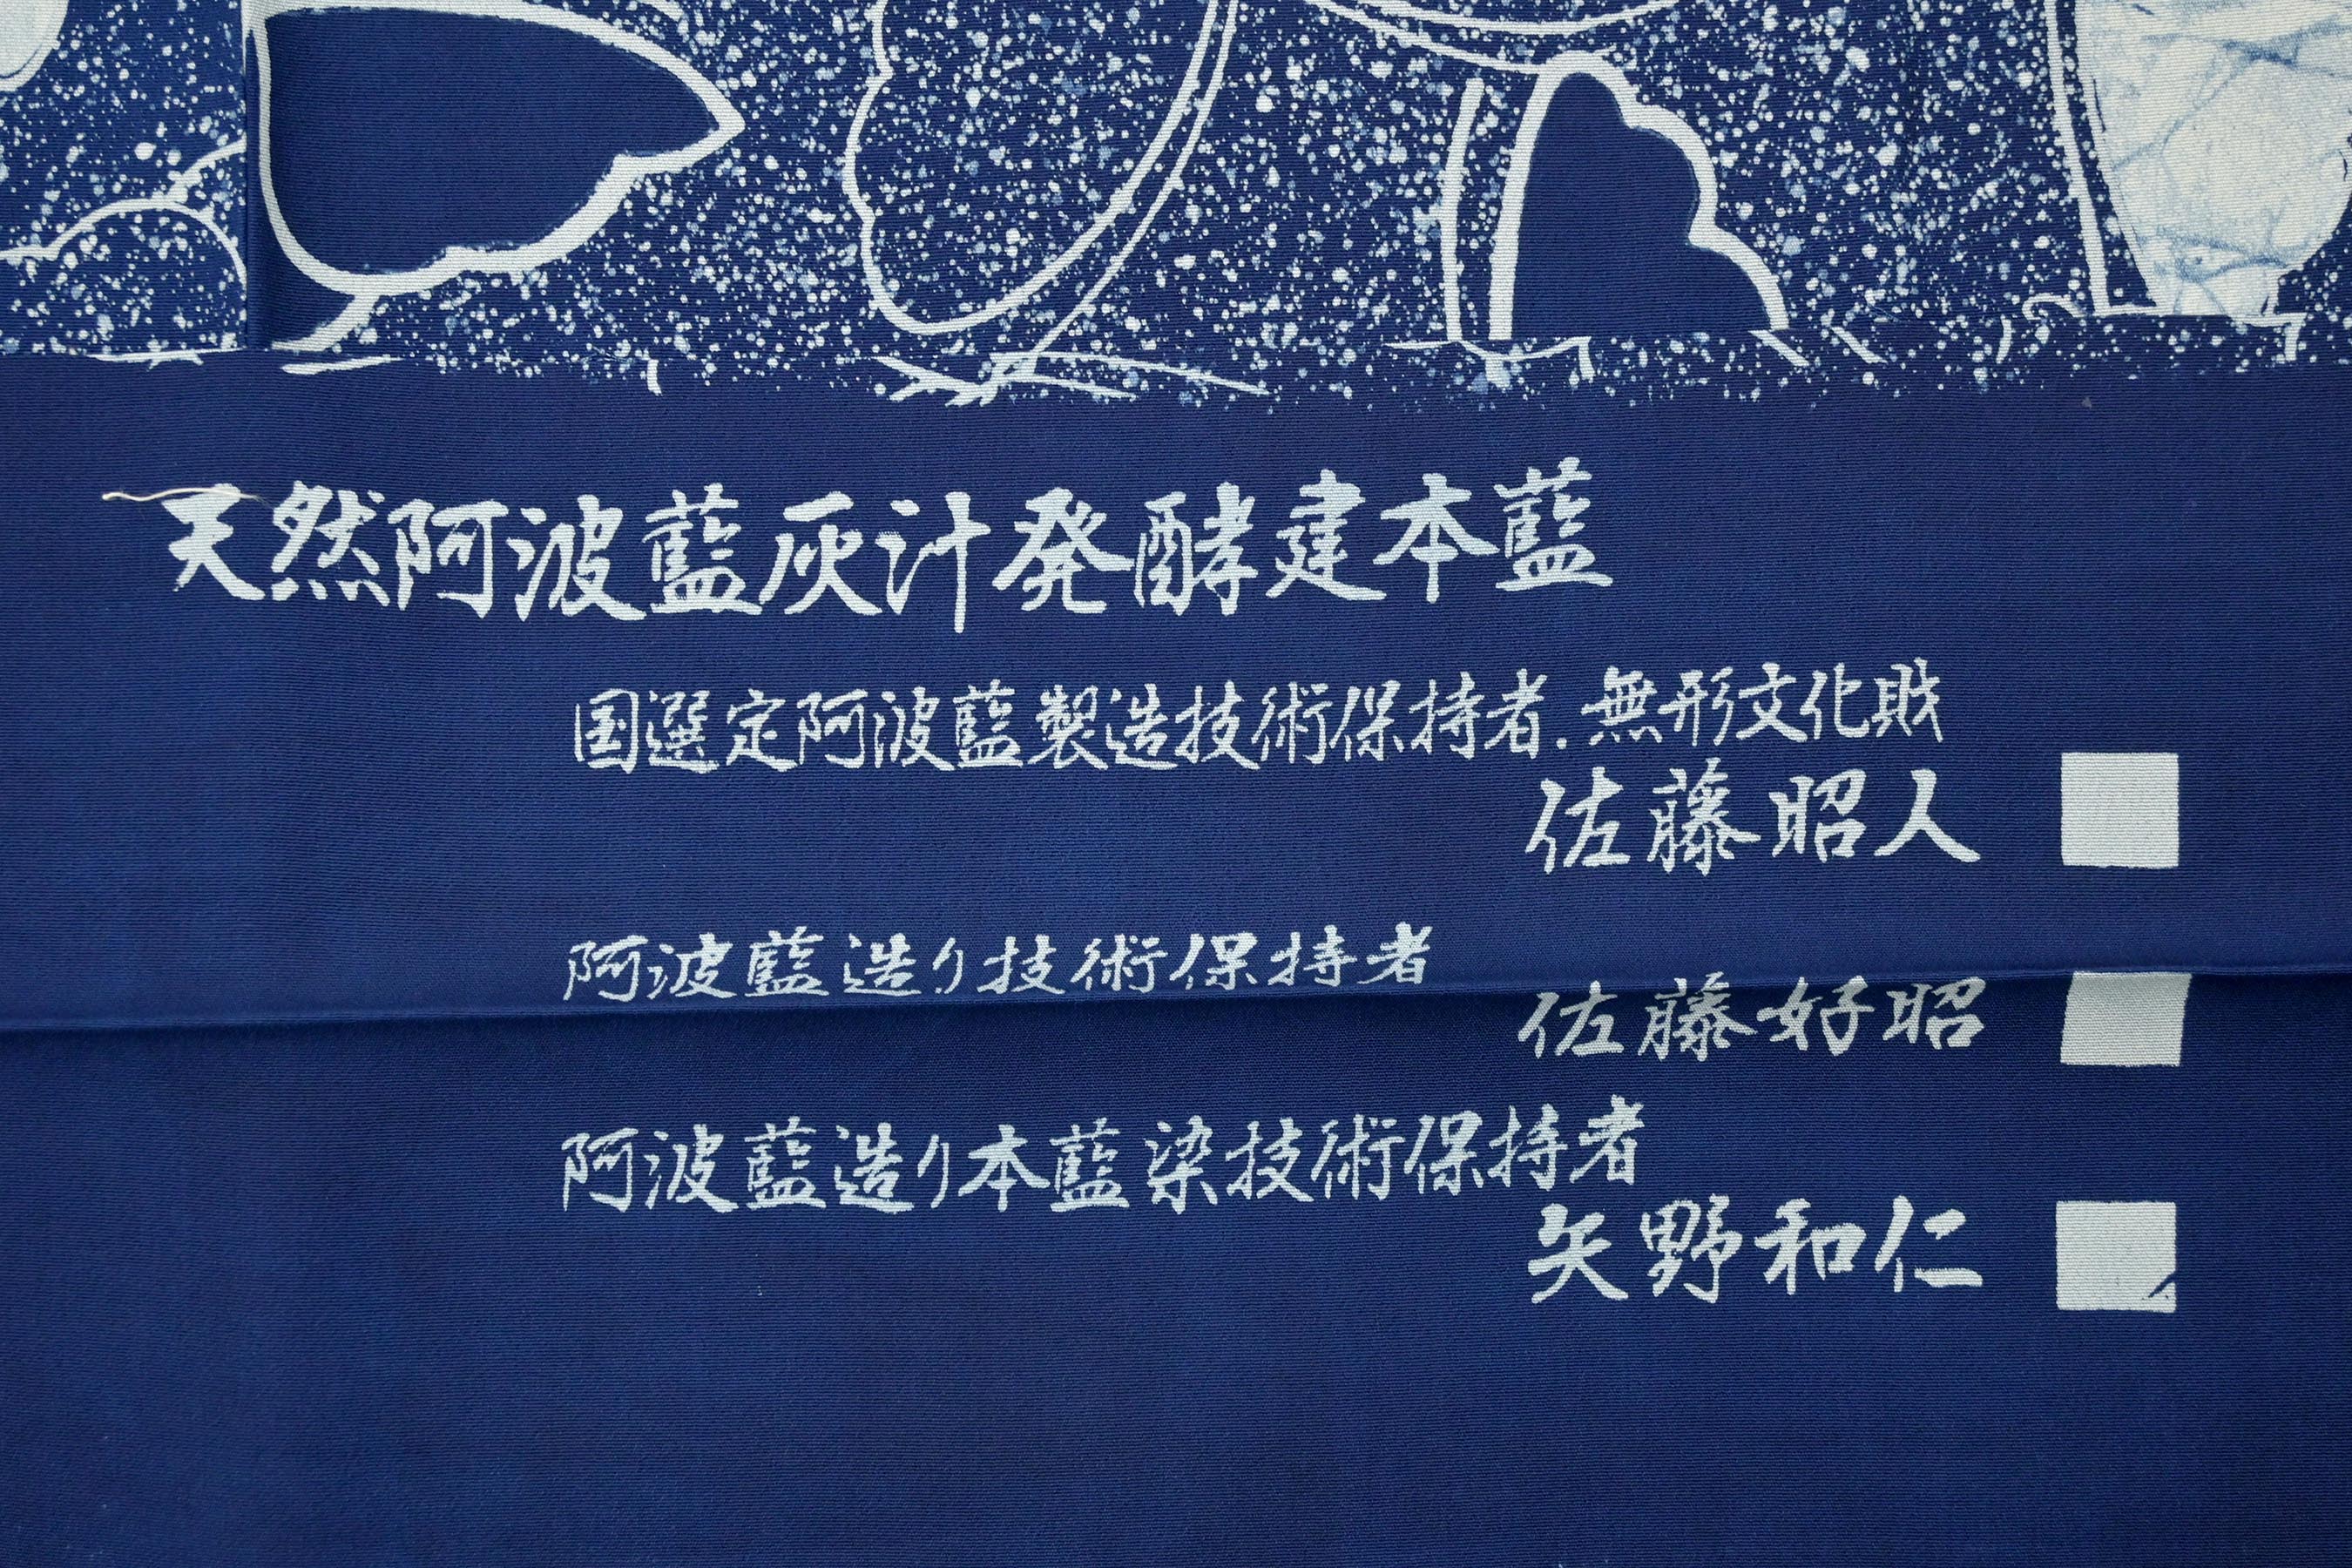 天然阿波藍灰汁発酵建本藍
国選定阿波藍製造技術保持者.無形文化財
佐藤昭人
阿波藍造り技術保持者
佐藤好昭
阿波藍造り本藍染技術保持者
矢野和仁